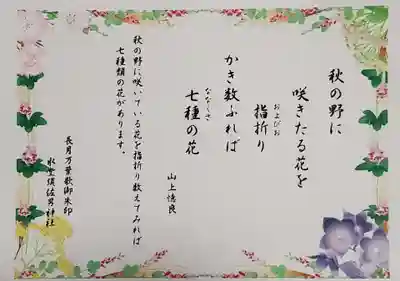 秋の野に
咲きたる花を
指折り
およびお
かき数ふれば
七種の花
ななくさ
山上憶良
秋の野に咲いている花を指折り数えてみれば
七種類の花があります。
長月万葉歌御朱印
水堂須佐男神社